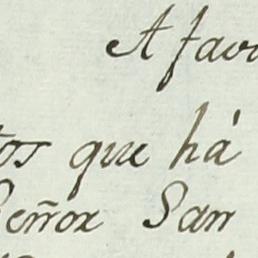 A fav
tos que há
Señor San